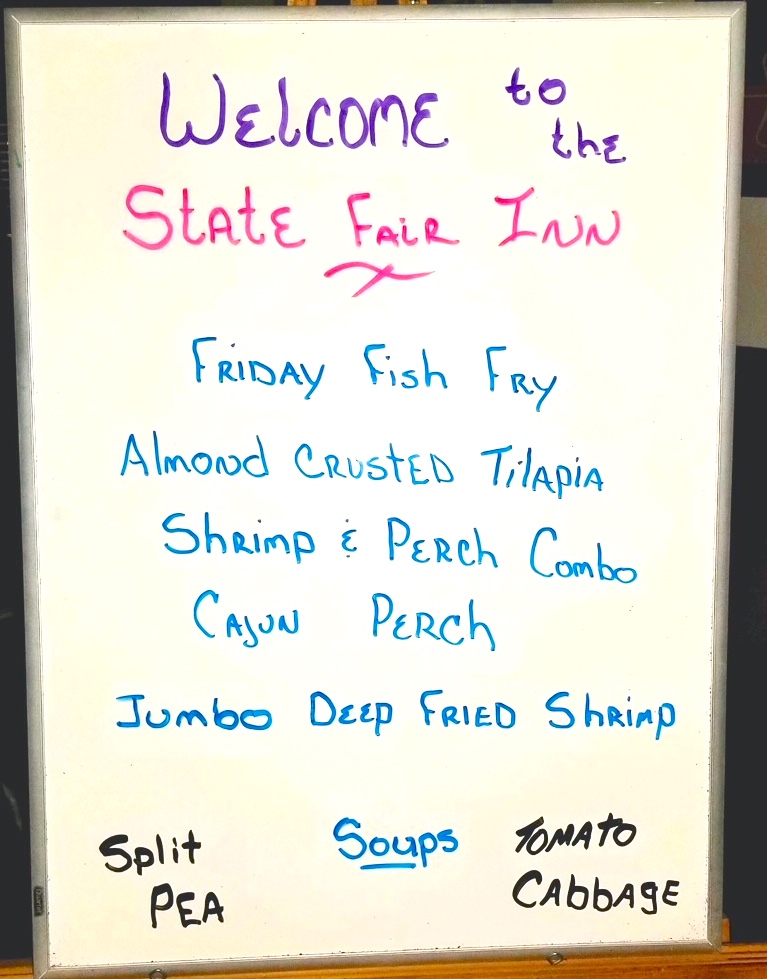 Welcome to
the
State Fair Inn
Friday Fish Fry
Almond Crusted Tilapia
Shrimp & Perch Combo
Cajun Perch
Jumbo Deep Fried Shrimp
Split
Pea
Soups
Tomato
Cabbage